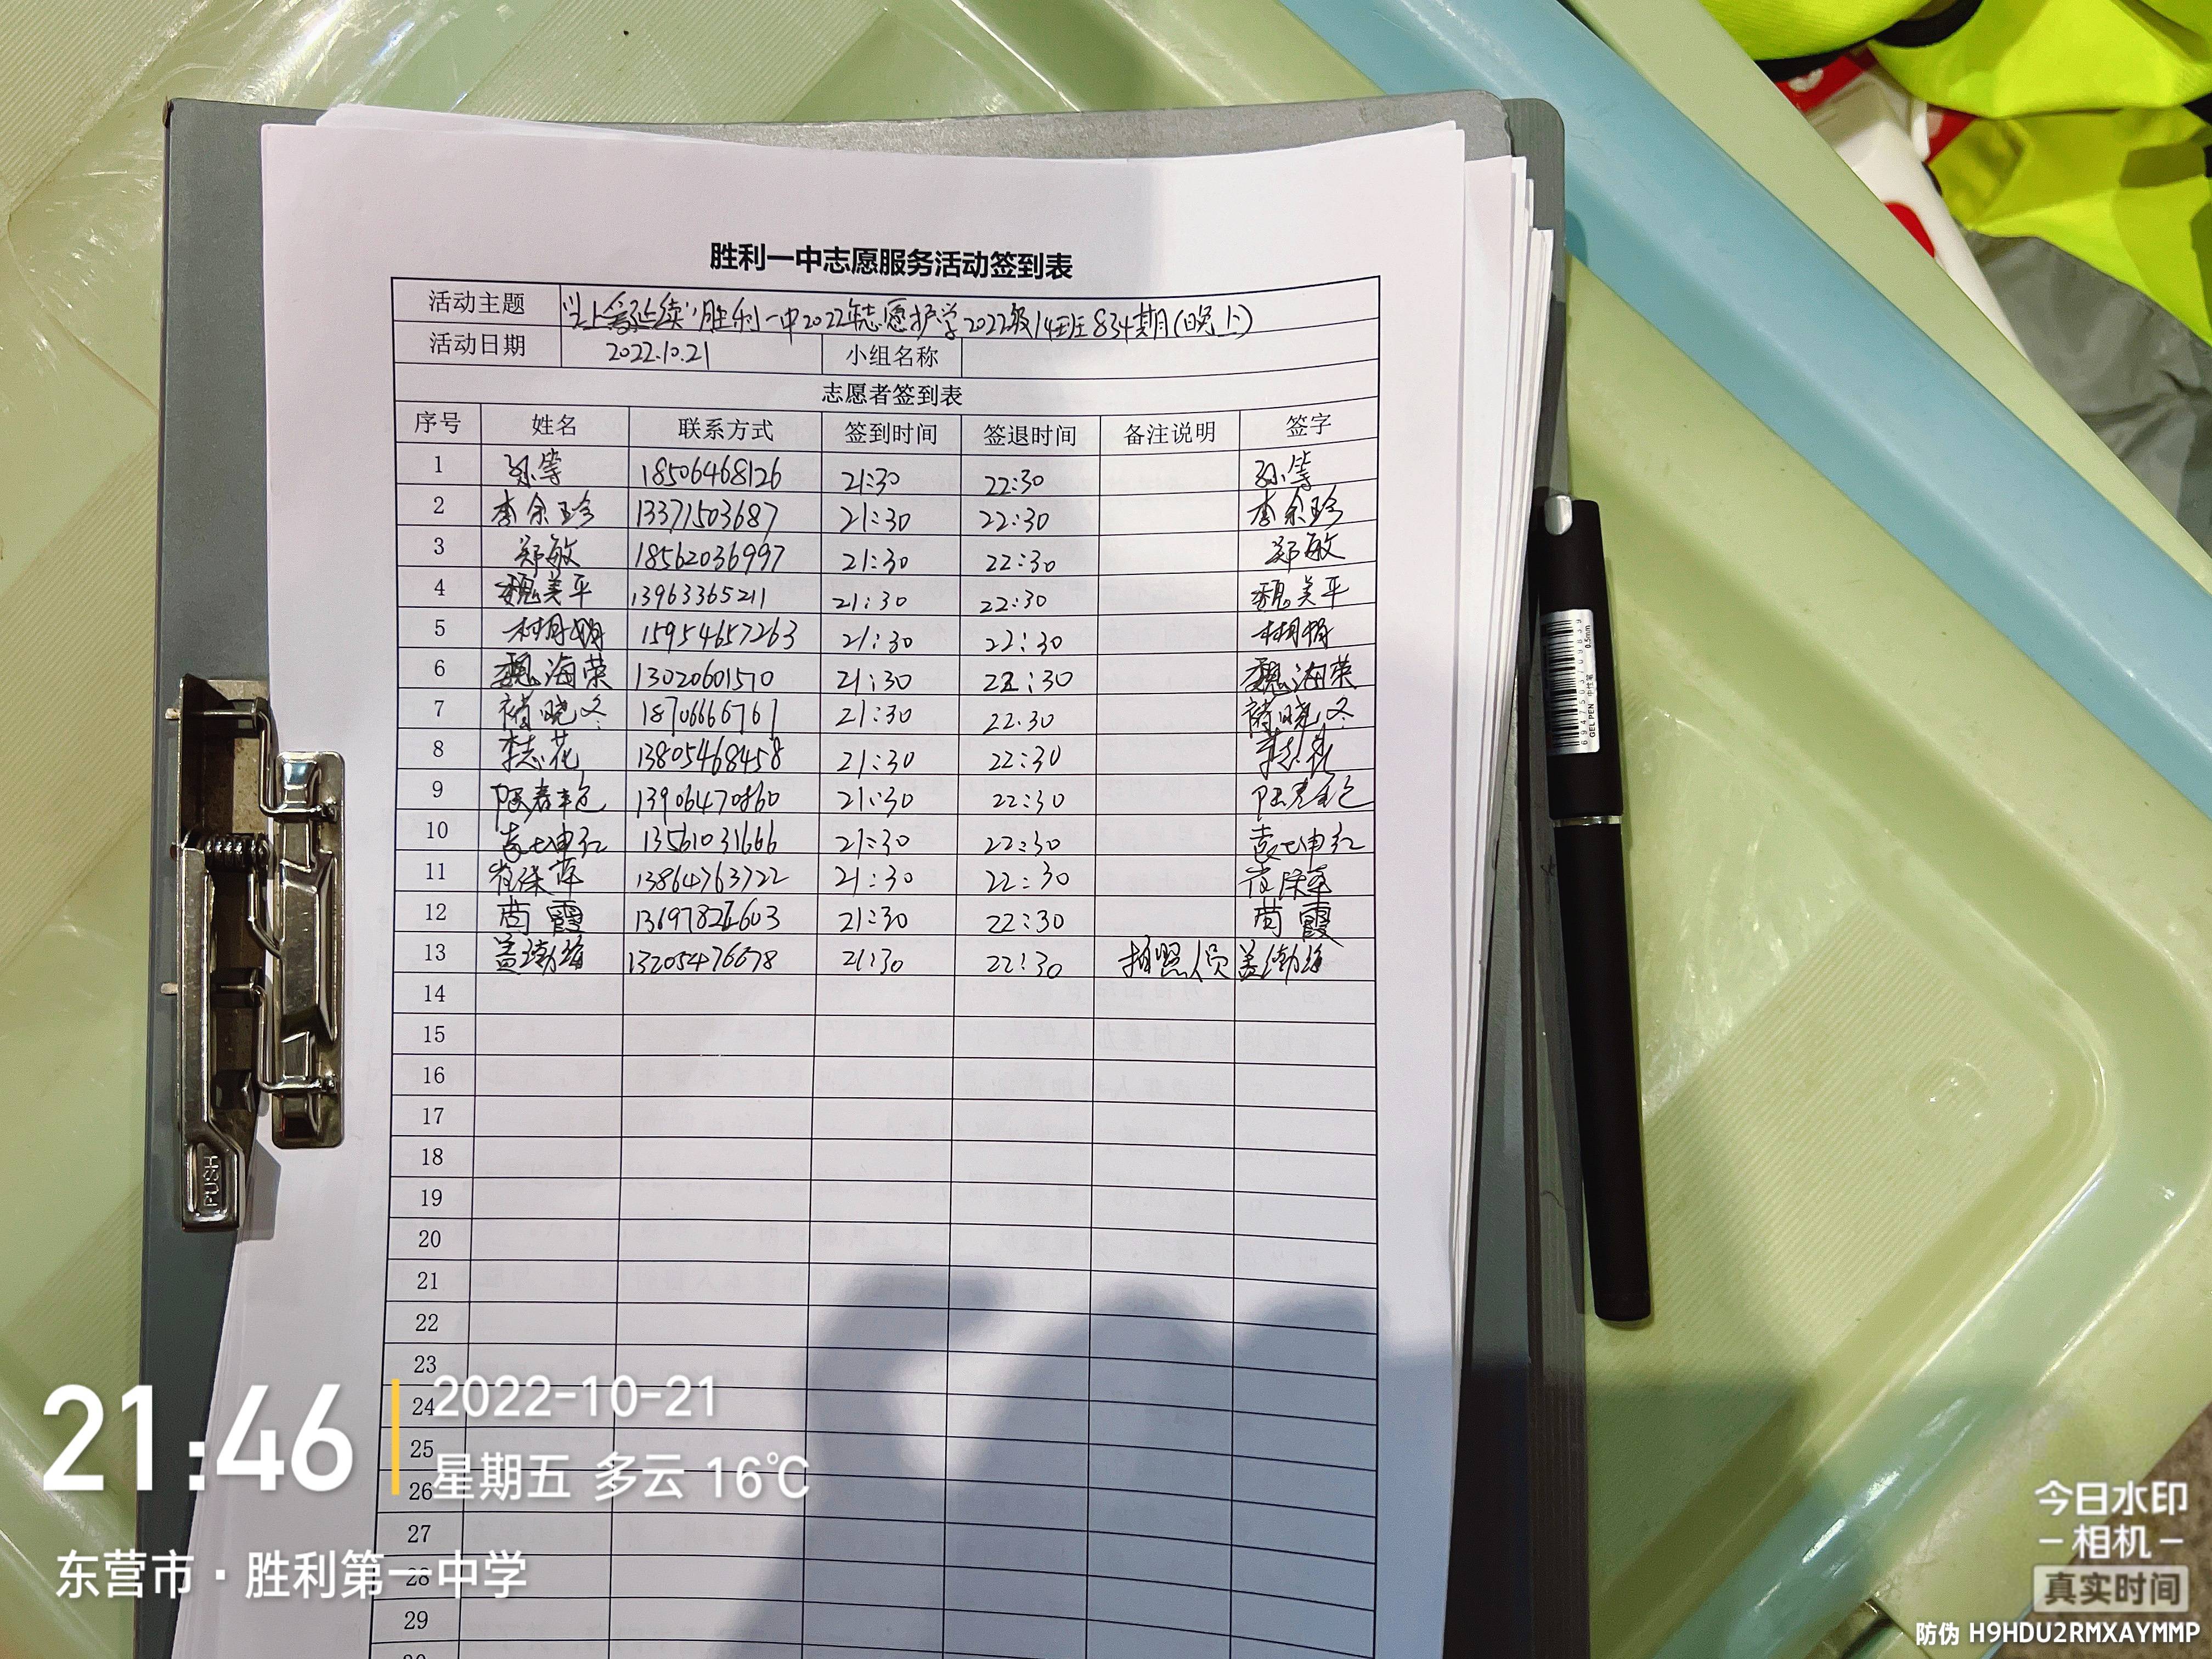 胜利一中志愿服务活动签到表
活动主题 胜利一中2022年志愿护学2022级14班834期(晚上)
活动日期 2022.10.21 小组名称
志愿者签到表
序号 姓名 联系方式 签到时间 签退时间 备注说明 签字
1 孙等 18506468126 21:30 22:30 孙等
2 李余珍 13371503687 21:30 22:30 李余珍
3 郑敏 18562036997 21:30 22:30 郑敏
4 魏美平 13963365211 21:30 22:30 魏美平
5 15954657263 21:30 22:30
6 魏海荣 13020601570 21:30 22:30 魏海荣
7 褚晓冬 18706666761 21:30 22:30 褚晓冬
8 李志花 13805468458 21:30 22:30 李志花
9 13906470860 21:30 22:30
10 13561031666 21:30 22:30
11 13864763722 21:30 22:30
12 苘霞 21:30 22:30 苘霞
13 盖渤海 13205476678 21:30 22:30 拍照人员 盖渤海
14
15
16
17
18
19
20
21
22
23
24
25
26
27
28
29
PUSH
GEL PEN 中性笔 0.5mm
21:46
2022-10-21
星期五 多云 16℃
东营市·胜利第一中学
今日水印
相机
真实时间
防伪 H9HDU2RMXAYMMP